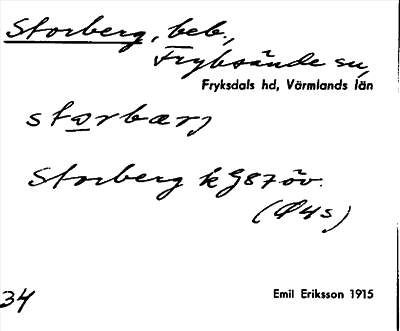 Storberg, beb.,
Fryksände sn,
Fryksdals hd, Värmlands län
Storberg k G87 öv.
(Ø4s)
34
Emil Eriksson 1915